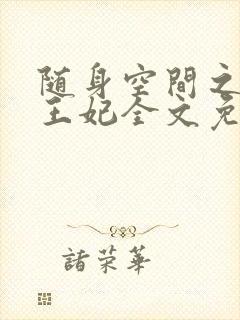 随身空间之
王妃全文免
諸荣華